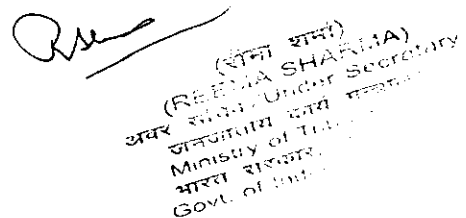 (रीना शर्मा)
(REEMA SHARMA)
अवर सचिव/Under Secretary
जनजातीय कार्य
Ministry of
भारत सरकार
Govt. of